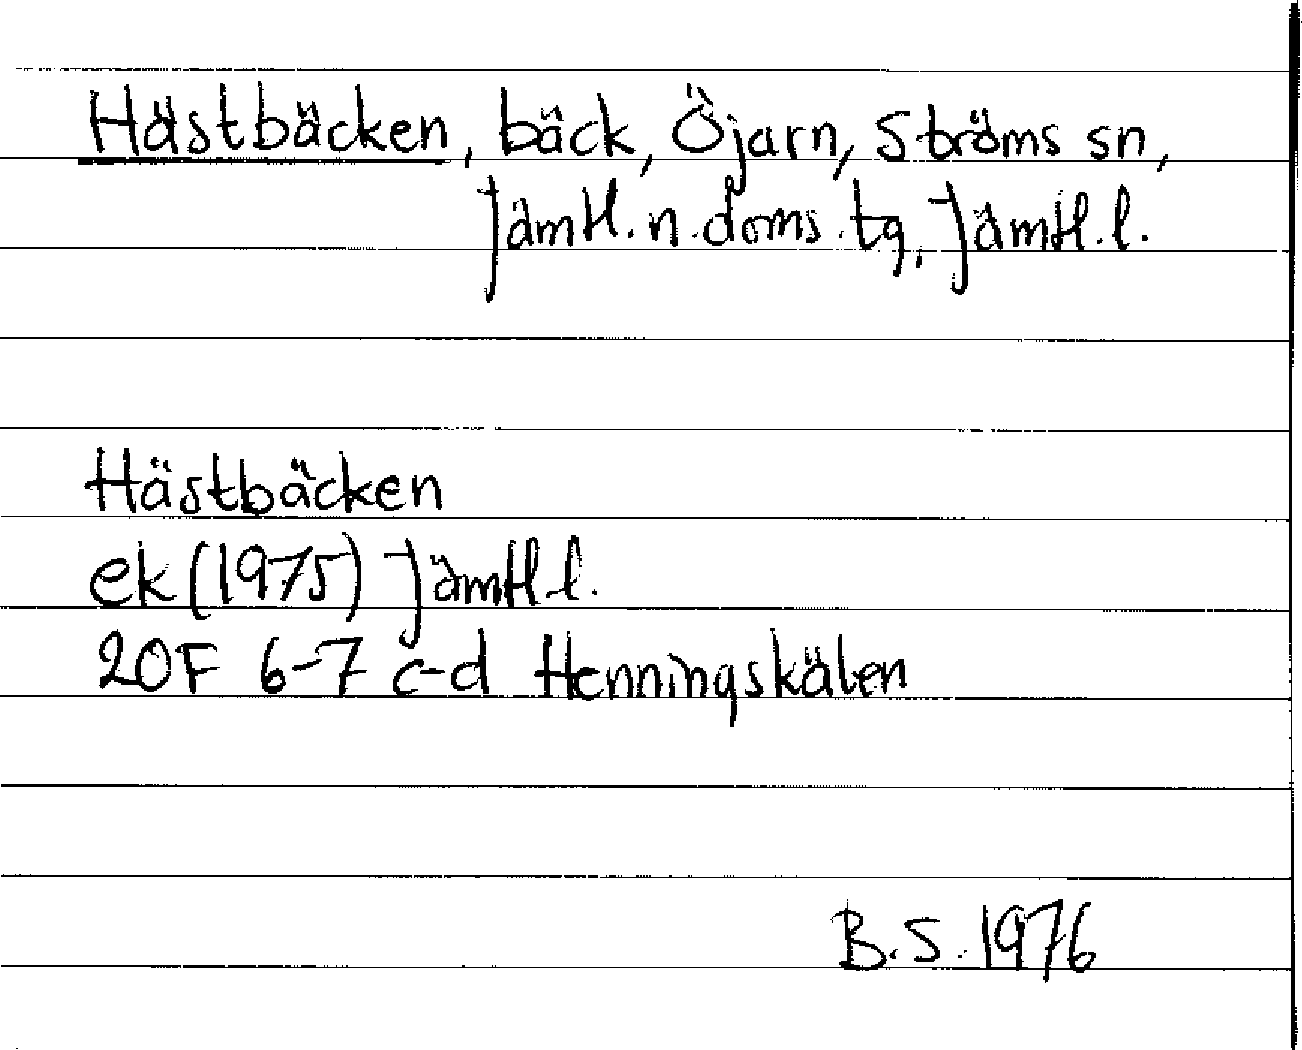 Hästbäcken, bäck, Öjarn, Ströms sn,
Jämtl. n. doms. tg, Jämtl. l.
Hästbäcken
ek (1975) Jämtl l.
20F 6-7 c-d Henningskälen
B.S. 1976